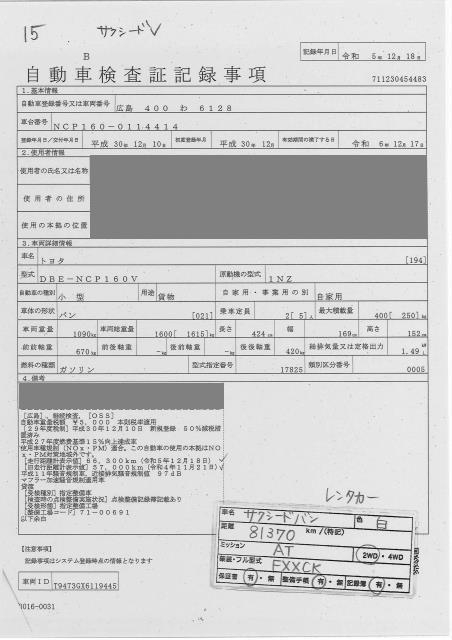 15 サクシードV
記録年月日 令和 5年12月18日
B
自動車検査証記録事項 711230454483
1.基本情報
自動車登録番号又は車両番号 広島 400 わ 6128
車台番号 NCP160-0114414
登録年月日/交付年月日 平成 30年 12月 10日 初度登録年月 平成 30年 12月 有効期間の満了する日 令和 6年 12月 17日
2.使用者情報
使用者の氏名又は名称
使用者の住所
使用の本拠の位置
3.車両詳細情報
車名 トヨタ [194]
型式 DBE-NCP160V 原動機の型式 1NZ
自動車の種別 小型 用途 貨物 自家用・事業用の別 自家用
車体の形状 バン [021] 乗車定員 2[ 5]人 最大積載量 400[ 250]kg
車両重量 1090kg 車両総重量 1600[ 1615]kg 長さ 424cm 幅 169cm 高さ 152cm
前前軸重 670kg 前後軸重 -kg 後前軸重 -kg 後後軸重 420kg 総排気量又は定格出力 1.49 kW L
燃料の種類 ガソリン 型式指定番号 17825 類別区分番号 0005
4.備考
[広島], 継続検査, [OSS]
自動車重量税額 ¥5,000 本則税率適用
[29年度税制]平成30年12月10日 新規登録 50%減税措置済み
平成27年度燃費基準15%向上達成車
使用車種規制(NOx・PM)適合, この自動車の使用の本拠はNOx・PM対策地域外です。
[走行距離計表示値]66,300km(令和5年12月18日)
[旧走行距離計表示値]57,000km(令和4年11月21日)
平成11年騒音規制車, 近接排気騒音値 97dB
マフラー加速騒音規制適用車
貸渡
[受検種別]指定整備車
[検査時の点検整備実施状況]点検整備記録簿記載あり
[受検形態]指定整備工場
[整備工場コード]71-00691
以下余白
レンタカー
車名 サクシードバン 色 白
距離 81370 km/(特記)
ミッション AT 2WD・4WD
架装・フル型式 FXXCK
保証書 有・無 整備手帳 有・無 記録簿 有・無
[注意事項]
記録事項はシステム登録時点の情報となります
車両ID T9473GX6119445
0016-0031